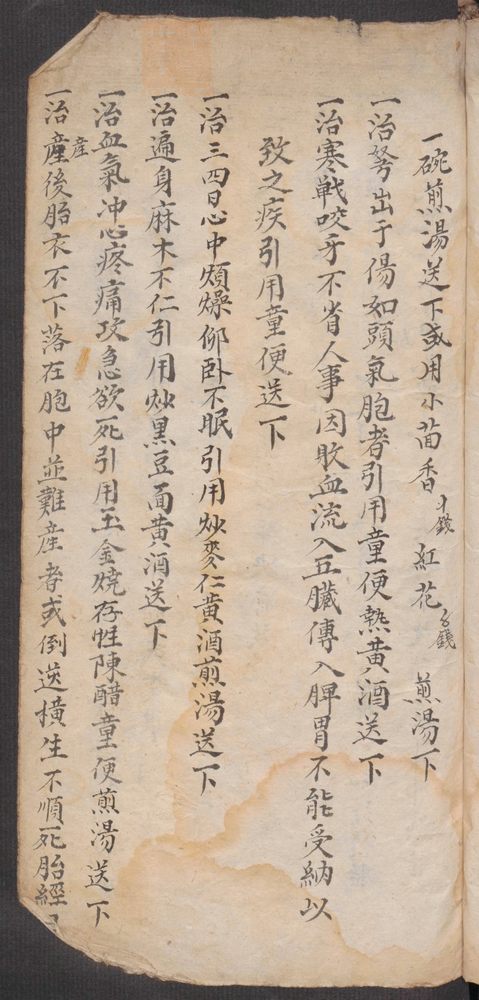 一碗煎湯送下或用小茴香 錢 紅花 錢 煎湯下
一治努出于傷如頭氣胞者引用童便熱黃酒送下
一治寒戰咬牙不省人事因敗血流入五臟傳入脾胃不能受納以
致之疾引用童便送下
一治三四日心中煩燥仰卧不眠引用炒麥仁黃酒煎湯送下
一治遍身麻木不仁引用炒黑豆面黃酒送下
一治血氣冲心疼痛攻急欲死引用玉金燒存性陳醋童便煎湯送下
一治產產後胎衣不下落在胞中並難産者或倒送橫生不順死胎經